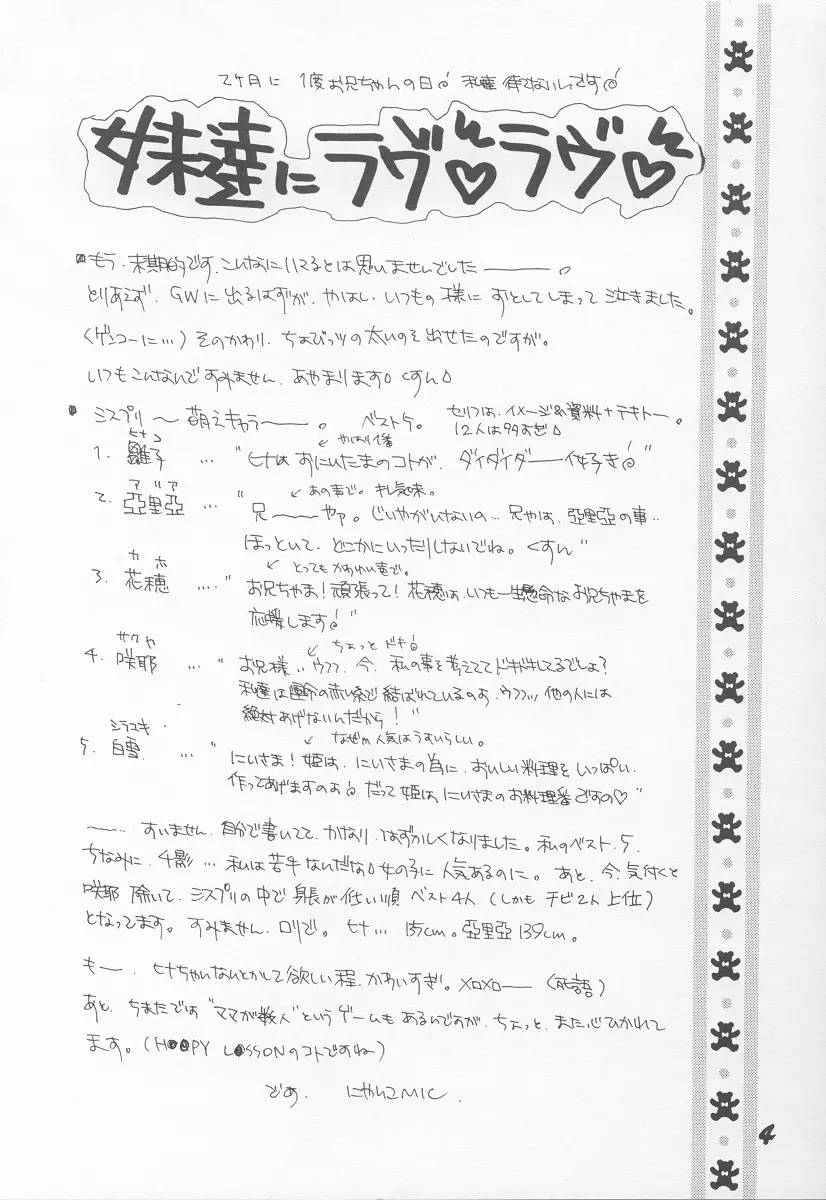 2ヶ月に 1度お兄ちゃんの日♪ 私達 待てないっです♪
妹達にラヴ♡ラヴ♡
もう、末期的です。こんなに
とは思いませんでした———。
とりあえず、GWに出るはずが、やはし、いつもの様に
してしまって泣きました。
(ゲンコーに…) そのかわり、ちょびっツの太いのを出せたのですが。
いつもこんなんですみません、あやまります。くすん。
シスプリ ～ 萌えキャラ———。 ベスト5。 セリフは、イメージ&資料+テキトー。
12人は多すぎ。
やはり1番
ヒナコ
1. 雛子 … "ヒナは おにいたまのコトが、ダイダイダー―イ好き♪"
あの声で。キレ気味。
アリア
2. 亞里亞 … "兄———やァ。じいやがいないの… 兄やは、亞里亞の事…
ほっといて、どこかにいったりしないでね。くすん"
とってもかわいい声で。
カホ
3. 花穂 …. "お兄ちゃま! 頑張って! 花穂は、いつも一生懸命なお兄ちゃまを
応援します♪"
ちょっと ドキ♪
サクヤ
4. 咲耶 … "お兄様‥ウフフ、今、私の事を考えててドキドキしてるでしょ?
私達は運命の赤い糸で結ばれているのよ、ウフフッ 他の人には
絶対あげないんだから!"
なぜか人気はうすいらしい。
シラユキ
5. 白雪. … "にいさま! 姫は、にいさまの為に、おいしい料理をいっぱい、
作ってあげますのよ♪だって姫は、にいさまのお料理番ですの♡"
〜… すいません、自分で書いてて、かなり、はずかしくなりました。私のベスト、5、
ちなみに、千影… 私は苦手なんだな。女の子に人気あるのに。あと、今、気付くと
咲耶 除いて、シスプリの中で身長が低い順 ベスト4人 (しかも チビ2人 上位)
となってます。すみません、ロリで。ヒナ… 135cm。亞里亞 139cm。
もー、ヒナちゃん
とかして欲しい程、かわいすぎ。メロメロ—— (死語)
あと、ちまたでは "ママが数人" というゲームもあるんですが、ちょっと、また心ひかれて
ます。(H●●PY L●SSONのコトですね)
であ、 にゃんこMIC.
4